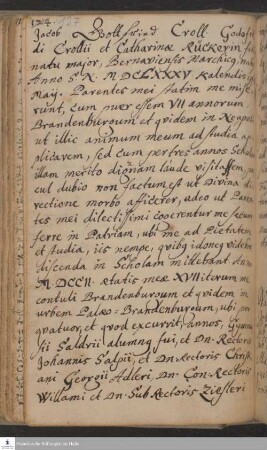 124.
Jacob Gottfried Croll. Godofr
di Crollii et Catharinæ Rückerin fi
natu major, Bernaviensis Marchicus, natus
Anno S. N. MDCLXXXV Kalendis
Maij. Parentes mei statim me mise
runt, cum puer essem VII annorum
Brandenburgum et quidem in Neopol
ut illic animum meum ad studia ap
plicarem, sed cum per tres annos Scho
illam merito dignam laude visitassem,
cul dubio non factum est ut Divina di
rectione morbo afficerer, adeo ut Paren
tes mei dilectissimi cogerentur me secum
ferre in Patriam, ubi me ad Pietatem
et studia, iis nempe, quibus idoneus videre
discenda in Scholam mittebant
MDCCII. ætatis meæ XVII iterum me
contuli Brandenburgum et quidem in
urbem Palæo-Brandenburgum, ubi per
quatuor, et quod excurrit, annos, Gymna
sii Saldrii alumnus fui, et Dn. Rectoris
Johannis Salpii, et Dn Rectoris Christi
ani Georgii Adleri, Dn. Con-Rectoris
Willami et Dn. Sub Rectoris Ziesleri